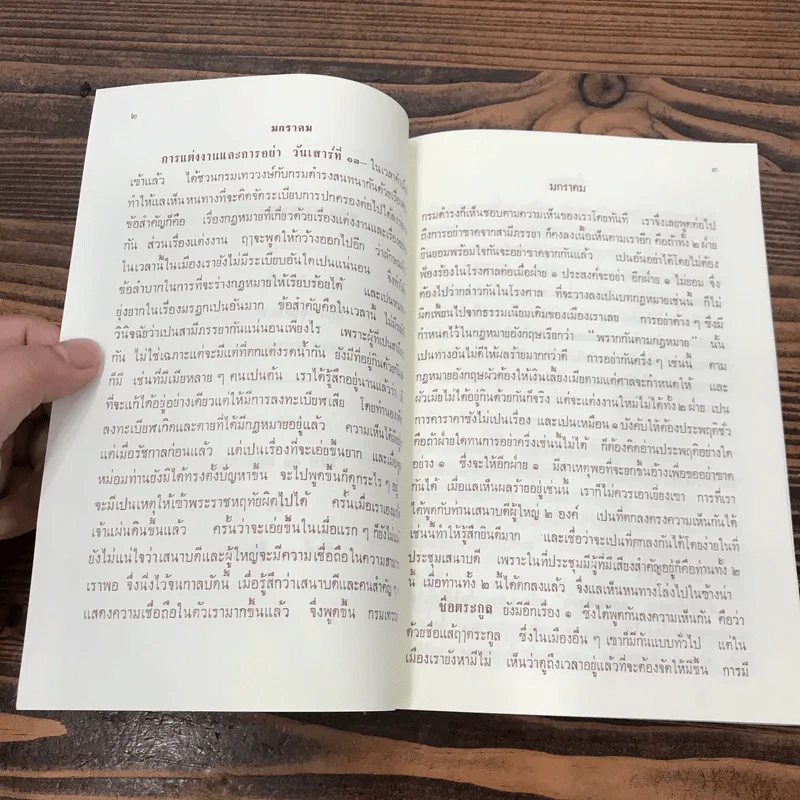 ๒
มกราคม
การแต่งงานและการอย่า วันเสาร์ที่ ๑๓– ในเวลา
เข้าแล้ว ได้ชวนกรมเทววงษ์กับกรมดำรงสนทนากันด้วยเรื่อง
ทำให้แลเห็นหนทางที่จะคิดจัดระเบียบการปกครองต่อไปได้
ข้อสำคัญก็คือ เรื่องกฎหมายที่เกี่ยวด้วยเรื่องแต่งงานและเรื่อง
กัน ส่วนเรื่องแต่งงาน ฤๅจะพูดให้กว้างออกไปอีก ว่าลักษณ
ในเวลานี้ในเมืองเรายังไม่มีระเบียบอันใดเปนแน่นอน ซึ่งทำให้
ข้อลำบากในการที่จะร่างกฎหมายให้เรียบร้อยได้ และเปน
ยุ่งยากในเรื่องมรฎกเปนอันมาก ข้อสำคัญคือในเวลานี้ ไม่มี
วินิจฉัยว่าเปนสามีภรรยากันแน่นอนเพียงไร เพราะผู้ที่เปนสามี
กัน ไม่ใช่เฉภาะแต่จะมีแต่ที่ตกแต่งรดน้ำกัน ยังมีที่อยู่กินด้วยกัน
ก็มี เช่นที่มีเมียหลาย ๆ คนเปนต้น เราได้รู้สึกอยู่นานแล้วว่า
ที่จะแก้ได้อยู่อย่างเดียวแต่ให้มีการลงทะเบียฬเสีย โดยทำนอง
ลงทะเบียฬเกิดและตายที่ได้มีกฎหมายอยู่แล้ว ความเห็นได้
แต่เมื่อรัชกาลก่อนแล้ว แต่เปนเรื่องที่จะเอ่ยขึ้นยาก และเมื่อ
หม่อมท่านยังมิได้ทรงตั้งปัญหาขึ้น จะไปพูดขึ้นก็ดูกระไร ๆ อยู่
จะมีเปนเหตุให้เข้าพระราชหฤทัยผิดไปได้ ครั้นเมื่อเราเอง
เจ้าแผ่นดินขึ้นแล้ว ครั้นว่าจะเอ่ยขึ้นในเมื่อแรก ๆ ก็ยังไม่
ยังไม่แน่ใจว่าเสนาบดีและผู้ใหญ่จะมีความเชื่อถือในความสามารถ
เราพอ จึงนิ่งไว้จนกาลบัดนี้ เมื่อรู้สึกว่าเสนาบดีและคนสำคัญ ๆ
แสดงความเชื่อถือในตัวเรามากขึ้นแล้ว จึงพูดขึ้น กรมเทววงษ์
๓
มกราคม
กรมดำรงก็เห็นชอบตามความเห็นของเราโดยทันที เราจึงเลยพูดต่อไป
ถึงการอย่าขาดจากสามีภรรยา ก็คงลงเนื้อเห็นตามเราอีก คือถ้าทั้ง ๒ ฝ่าย
ยินยอมพร้อมใจกันจะอย่าขาดจากกันแล้ว เปนอันอย่าได้โดยไม่ต้อง
ฟ้องร้องในโรงศาลต่อเมื่อฝ่าย ๑ ประสงค์จะอย่า อีกฝ่าย ๑ ไม่ยอม จึง
ต้องไปว่ากล่าวกันในโรงศาล ที่จะวางลงเปนบทกฎหมายเช่นนี้ ก็ไม่
ผิดเพี้ยนไปจากธรรมเนียมเดิมของเมืองเราเลย การอย่าค้าง ๆ ซึ่งมี
กำหนดไว้ในกฎหมายอังกฤษเรียกว่า “พรากกันตามกฎหมาย” นั้น
เปนทางอันไม่ดีให้ผลร้ายมากกว่าดี การอย่ากันครึ่งๆ เช่นนี้ ตาม
กฎหมายอังกฤษผัวต้องให้เงินเลี้ยงเมียตามแต่ศาลจะกำหนดให้ และ
ผัวเมียไม่ได้อยู่กินด้วยกันก็จริง แต่จะแต่งงานใหม่ไม่ได้ทั้ง ๒ ฝ่าย เปน
การคาราคาซังไม่เปนเรื่อง และเปนเหมือน ๑ บังคับให้ต้องประพฤติชั่ว
คือถ้าฝ่ายใดทนการอย่าครึ่งเช่นนี้ไม่ได้ ก็ต้องคิดอ่านประพฤติอย่างใด
อย่าง ๑ ซึ่งจะให้อีกฝ่าย ๑ มีสาเหตุพอที่จะยกขึ้นอ้างเพื่อขออย่าขาด
กันได้ เมื่อแลเห็นผลร้ายอยู่เช่นนี้ เราก็ไม่ควรเอาเยี่ยงเขา การที่เรา
ได้พูดกับท่านเสนาบดีผู้ใหญ่ ๒ องค์ เปนที่ตกลงตรงความเห็นกันได้
เช่นนี้ทำให้รู้สึกยินดีมาก และเชื่อว่าจะเปนที่ตกลงกันได้โดยง่ายในที่
ประชุมเสนาบดี เพราะในที่ประชุมมีผู้ที่มีเสียงสำคัญอยู่ก็คือท่านทั้ง ๒
นี้ เมื่อท่านทั้ง ๒ นี้ได้ตกลงแล้ว จึงแลเห็นหนทางโล่งไปในข้างน่า
ชื่อตระกูล ยังมีอีกเรื่อง ๑ ซึ่งได้พูดกันลงความเห็นกัน คือว่า
ด้วยชื่อแส้ฤๅตระกูล ซึ่งในเมืองอื่น ๆ เขาก็มีกันแบบทั่วไป แต่ใน
เมืองเรายังหามีไม่ เห็นว่าดูถึงเวลาอยู่แล้วที่จะต้องจัดให้มีขึ้น การมี